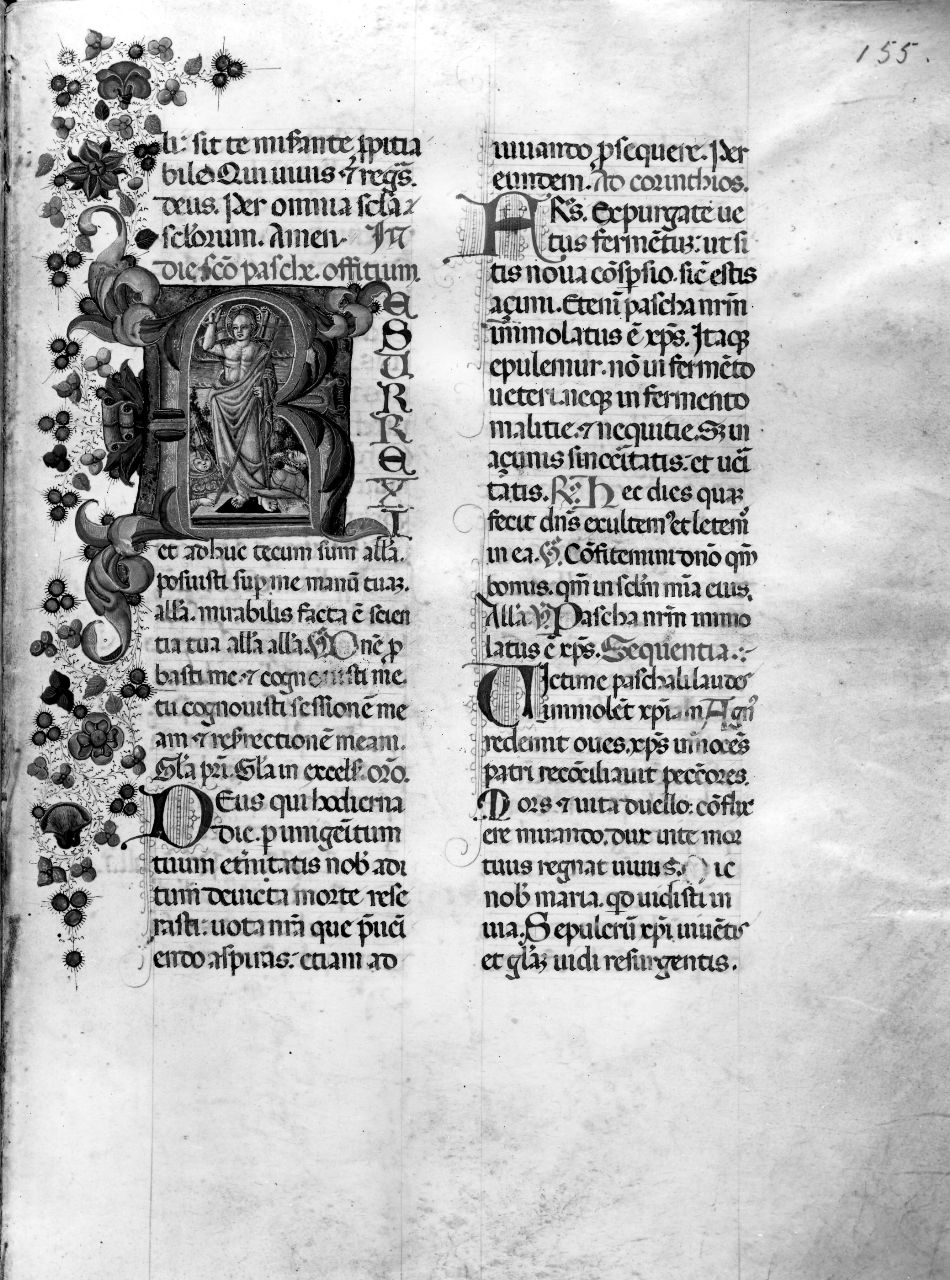 155.
li: sit te miserante ppitia
bile Qui uiuis ⁊ regs̄.
deus. Per omnia scła
scłorum. Amen. In
die sc̄o pasche. offitium
RESURREXI
et adhuc tecum sum all̄a.
posuisti sup me manū tuaꝫ.
all̄a. mirabilis facta ē scien
tia tua all̄a all̄a. Dn̄e ꝓ
basti me ⁊ cognouisti me.
tu cognouisti sessionē me
am ⁊ resurrectionē meam.
Gl̄a pr̄i. Gl̄a in excels. or̄o.
Deus qui hodierna
die. p unigēitum
tuum et̄nitatis nob̄ adi
tum deuicta morte rese
rasti: uota nr̄a que p̄ueni
endo aspiras: etiam ad
iuuando ꝓsequere. Per
eundem. Ad corinthios.
FRs̄. Expurgate ue
tus fermētuꝫ: ut si
tis noua cōspsio. sic̄ estis
açimi. Eteni pascha nrm̄
immolatus ē xp̄s. Itaqꝫ
epulemur. nō in fermēto
ueteri. neqꝫ in fermento
malitie. ⁊ nequitie. Sꝫ in
açimis sincēitatis: et ueī
tatis. R̄. Hec dies quaꝫ
fecit dn̄s exultemꝰ et letem̄
in ea. V̄. Cōfitemini dn̄o qm̄
bonus. qm̄ in sclm̄ mīa eius.
All̄a. V̄. Pascha nrm̄ immo
latus ē xp̄s. Sequentia.
Uictime paschali laudes
immolēt xp̄iani Agn̄
redemit oues. xp̄s innocēs
patri recōciliauit peccōres.
Mors ⁊ uita duello: cōflix
ere mirando. dux uite mor
tuus regnat uiuus. Dic
nob̄ maria. qd uidisti in
uia. Sepulcrū xp̄i uiuētis
et gl̄aꝫ uidi resurgentis.